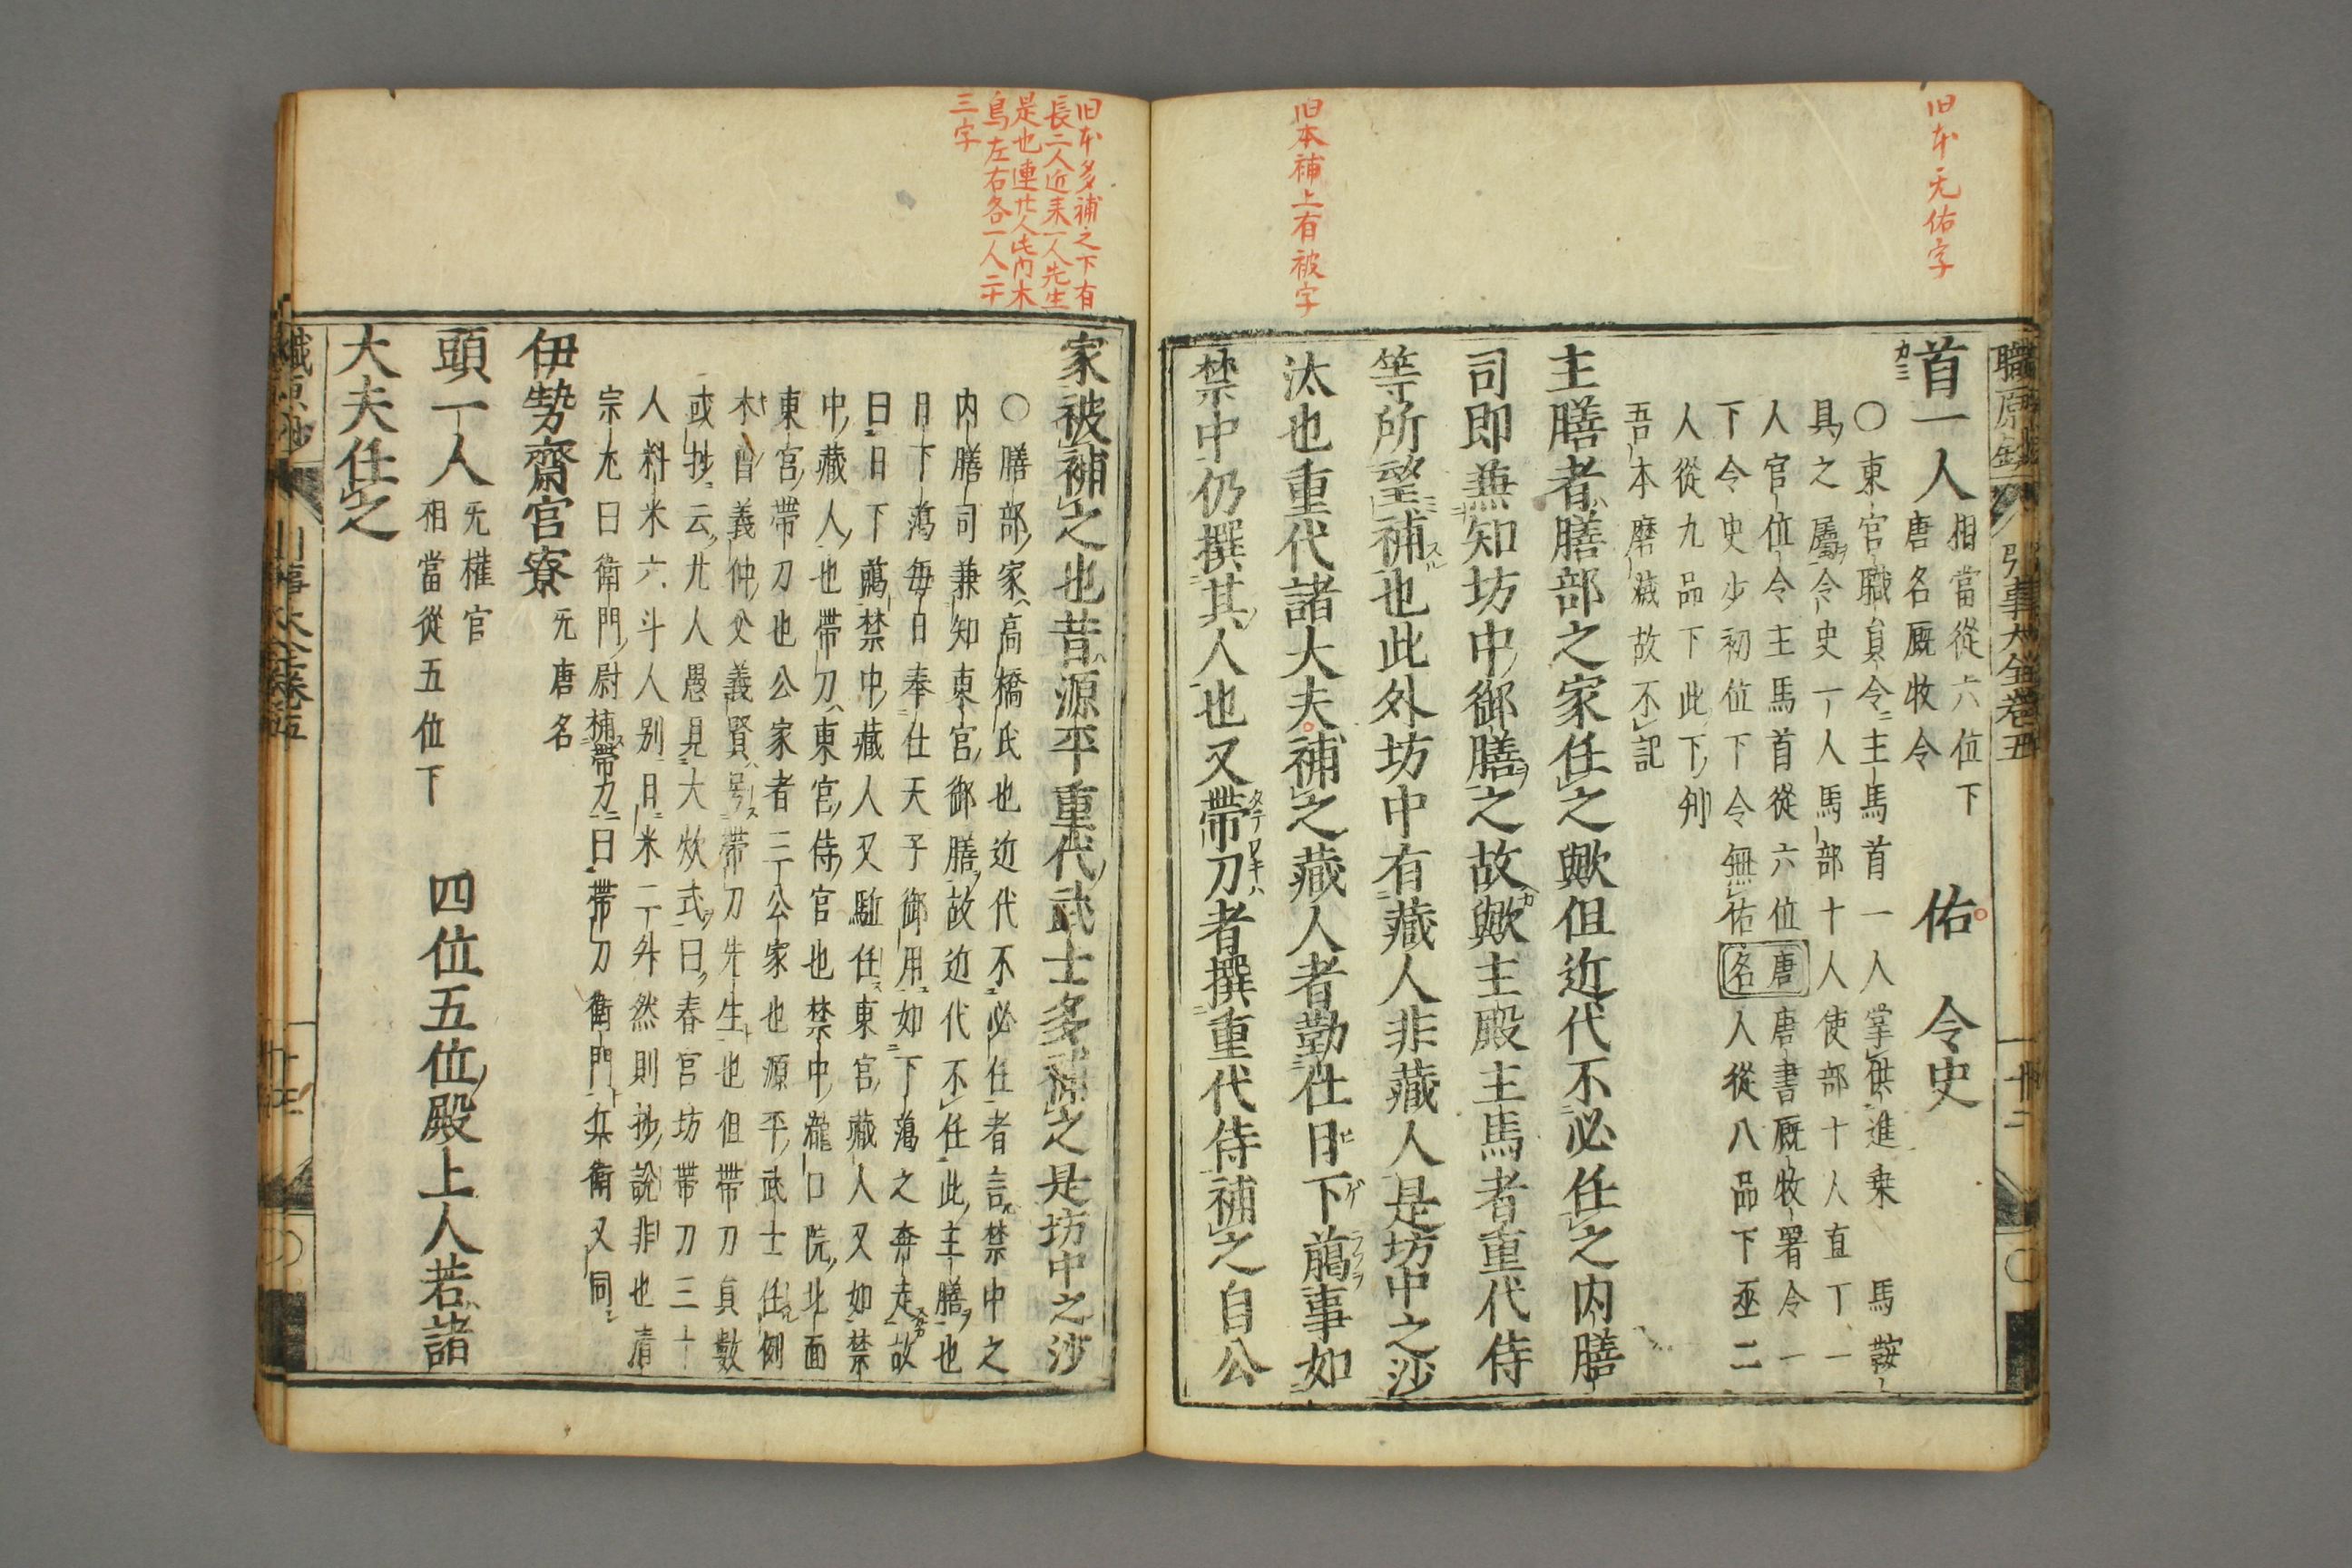 旧本无佑字
旧本補上有被字
職原鈔 引事大全卷五 十二
首一人 相當從六位下 唐名厩牧令 佑 令史
〇東宮職員令主馬首一人掌供進乗馬鞍
具之屬令史一人馬部十人使部十人直丁一
人官位令主馬首從六位唐唐書厩牧署令一
下令史少初位下令無佑名人從八品下丞二
人從九品下此下列
吾本磨滅故不記
主膳者膳部之家任之歟但近代不必任之内膳
司即兼知坊中御膳之故歟主殿主馬者重代侍
等所望補也此外坊中有藏人非藏人是坊中之沙
汰也重代諸大夫補之藏人者勤仕日下﨟事如
禁中仍撰其人也又帶刀者撰重代侍補之自公
旧本多補之下有
長二人近来一人先生
是也連廿人此内木
鳥左右各一人二十
三字
家被補之也昔源平重代武士多補之是坊中之沙
〇膳部家高橋氏也近代不必任者言禁中之
内膳司兼知東宮御膳故近代不任此主膳也
日下﨟毎日奉仕天子御用如下﨟之奔走故
曰日下﨟禁中藏人又駈任東宮藏人又如禁
中藏人也帶刀東宮侍官也禁中瀧口院北面
東宮帶刀也公家者三公家也源平武士任例
木曽義仲父義賢号帶刀先生也但帶刀員數
或抄云九人愚見大炊式曰春宮坊帶刀三十
人料米六斗人別日米二升然則抄說非也清
宗尤曰衛門尉補帶刀曰帶刀衛門兵衛又同
伊勢齋宮寮 无唐名
頭一人 无權官 相當從五位下 四位五位殿上人若諸
大夫任之